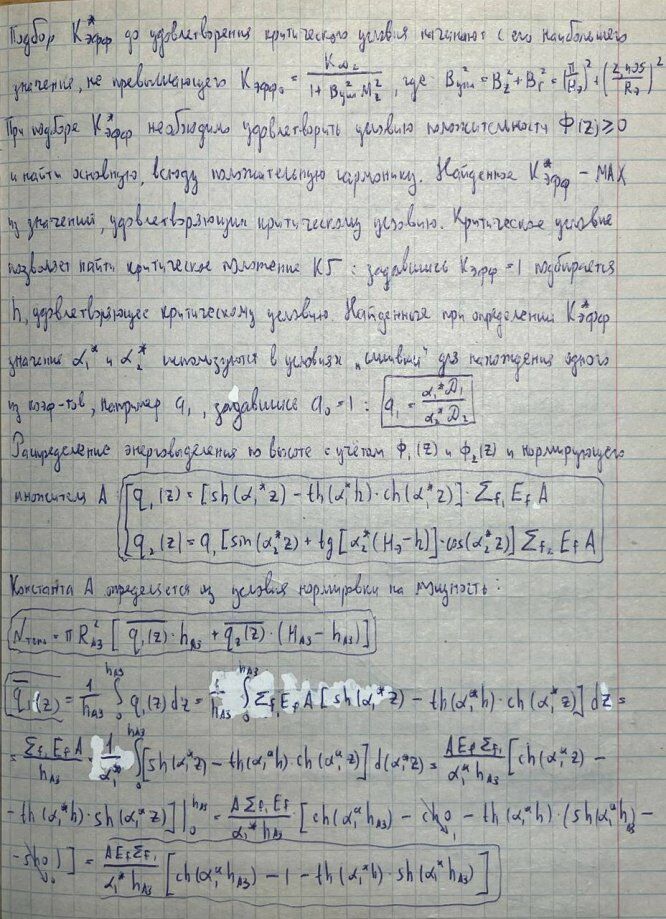 Подбор K*эфф до удовлетворения критического условия начинают с его наибольшего
значения, не превышающего Kэфф₀ = K∞₂ / (1 + B²упл M₂²), где B²упл = B_z² + B_r² = (π/Hэ)² + (2,405/Rэ)²
При подборе K*эфф необходимо удовлетворить условию положительности Ф(z) ≥ 0
и найти основную, всюду положительную гармонику. Найденное K*эфф – MAX
из значений, удовлетворяющих критическому условию. Критическое условие
позволяет найти критическое положение КГ: задавшись Kэфф = 1 подбирается
h, удовлетворяющее критическому условию. Найденные при определении K*эфф
значения α₁* и α₂* используются в условиях „сшивки” для нахождения одного
из коэф-тов, например a₁, задавшись a₀ = 1: a₁ = α₁*D₁ / α₂*D₂
Распределение энерговыделения по высоте с учётом Ф₁(z) и Ф₂(z) и нормирующего
множителя A { q₁(z) = [sh(α₁*z) – th(α₁*h)·ch(α₁*z)]·Σf₁ Ef A
q₂(z) = a₁[sin(α₂*z) + tg[α₂*(Hэ–h)]·cos(α₂*z)] Σf₂ Ef A
Константа A определяется из условия нормировки на мощность:
Nтепл = π R²аз [q₁(z)·hаз + q₂(z)·(Hаз – hаз)]
q₁(z) = 1/hаз ∫₀^hаз q₁(z)dz = 1/hаз ∫₀^hаз Σf₁ Ef A [sh(α₁*z) – th(α₁*h)·ch(α₁*z)] dz =
= Σf₁ Ef A / hаз · 1/α₁* ∫₀^hаз [sh(α₁*z) – th(α₁*h)·ch(α₁*z)] d(α₁*z) = A Ef Σf₁ / α₁* hаз [ch(α₁*z) –
– th(α₁*h)·sh(α₁*z)]|₀^hаз = A Σf₁ Ef / α₁* hаз [ch(α₁*hаз) – ch0 – th(α₁*h)·(sh(α₁*hаз) –
– sh0)] = A Ef Σf₁ / α₁* hаз [ch(α₁*hаз) – 1 – th(α₁*h)·sh(α₁*hаз)]